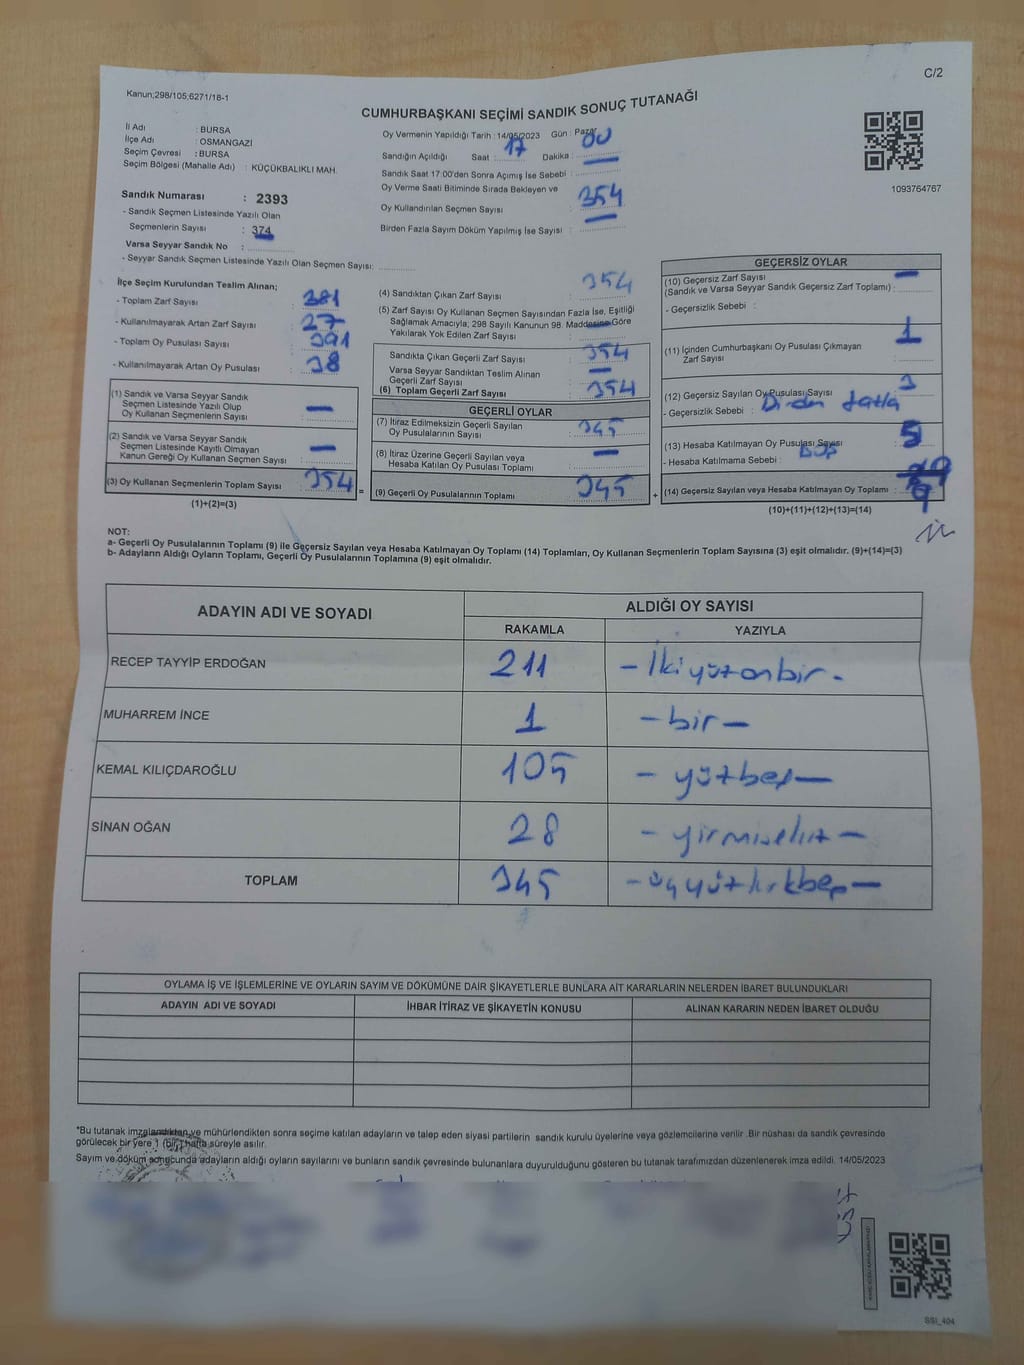 C/2
Kanun;298/105;6271/18-1
CUMHURBAŞKANI SEÇİMİ SANDIK SONUÇ TUTANAĞI
İl Adı : BURSA
İlçe Adı : OSMANGAZİ
Seçim Çevresi : BURSA
Seçim Bölgesi (Mahalle Adı) : KÜÇÜKBALIKLI MAH.
Sandık Numarası : 2393
- Sandık Seçmen Listesinde Yazılı Olan
Seçmenlerin Sayısı : 374
Varsa Seyyar Sandık No :
- Seyyar Sandık Seçmen Listesinde Yazılı Olan Seçmen Sayısı:
Oy Vermenin Yapıldığı Tarih : 14/05/2023 Gün : Pazar
Sandığın Açıldığı Saat : 17 Dakika : 00
Sandık Saat 17:00'den Sonra Açımış İse Sebebi :
Oy Verme Saati Bitiminde Sırada Bekleyen ve
Oy Kullandırılan Seçmen Sayısı : 354
Birden Fazla Sayım Döküm Yapılmış İse Sayısı : —
1093764767
İlçe Seçim Kurulundan Teslim Alınan;
- Toplam Zarf Sayısı : 381
- Kullanılmayarak Artan Zarf Sayısı : 27
- Toplam Oy Pusulası Sayısı : 391
- Kullanılmayarak Artan Oy Pusulası : 38
(1) Sandık ve Varsa Seyyar Sandık
Seçmen Listesinde Yazılı Olup
Oy Kullanan Seçmenlerin Sayısı : —
(2) Sandık ve Varsa Seyyar Sandık
Seçmen Listesinde Kayıtlı Olmayan
Kanun Gereği Oy Kullanan Seçmen Sayısı : —
(3) Oy Kullanan Seçmenlerin Toplam Sayısı : 354
(1)+(2)=(3)
=
(4) Sandıktan Çıkan Zarf Sayısı : 354
(5) Zarf Sayısı Oy Kullanan Seçmen Sayısından Fazla İse, Eşitliği
Sağlamak Amacıyla; 298 Sayılı Kanunun 98. Maddesine Göre
Yakılarak Yok Edilen Zarf Sayısı : —
Sandıkta Çıkan Geçerli Zarf Sayısı : 354
Varsa Seyyar Sandıktan Teslim Alınan
Geçerli Zarf Sayısı : —
(6) Toplam Geçerli Zarf Sayısı : 354
GEÇERLİ OYLAR
(7) İtiraz Edilmeksizin Geçerli Sayılan
Oy Pusulalarının Sayısı : 345
(8) İtiraz Üzerine Geçerli Sayılan veya
Hesaba Katılan Oy Pusulası Toplamı : —
(9) Geçerli Oy Pusulalarının Toplamı : 345
+
GEÇERSİZ OYLAR
(10) Geçersiz Zarf Sayısı
(Sandık ve Varsa Seyyar Sandık Geçersiz Zarf Toplamı) : —
- Geçersizlik Sebebi :
(11) İçinden Cumhurbaşkanı Oy Pusulası Çıkmayan
Zarf Sayısı : 1
(12) Geçersiz Sayılan Oy Pusulası Sayısı : 3
- Geçersizlik Sebebi : Birden fazla
(13) Hesaba Katılmayan Oy Pusulası Sayısı : 5
- Hesaba Katılmama Sebebi : BOŞ
(14) Geçersiz Sayılan veya Hesaba Katılmayan Oy Toplamı : 9
(10)+(11)+(12)+(13)=(14)
NOT:
a- Geçerli Oy Pusulalarının Toplamı (9) ile Geçersiz Sayılan veya Hesaba Katılmayan Oy Toplamı (14) Toplamları, Oy Kullanan Seçmenlerin Toplam Sayısına (3) eşit olmalıdır. (9)+(14)=(3)
b- Adayların Aldığı Oyların Toplamı, Geçerli Oy Pusulalarının Toplamına (9) eşit olmalıdır.
ADAYIN ADI VE SOYADI ALDIĞI OY SAYISI
RAKAMLA YAZIYLA
RECEP TAYYİP ERDOĞAN 211 - İkiyüzonbir -
MUHARREM İNCE 1 - bir -
KEMAL KILIÇDAROĞLU 105 - yüzbeş -
SİNAN OĞAN 28 - yirmisekiz -
TOPLAM 345 - üçyüzkırkbeş -
OYLAMA İŞ VE İŞLEMLERİNE VE OYLARIN SAYIM VE DÖKÜMÜNE DAİR ŞİKAYETLERLE BUNLARA AİT KARARLARIN NELERDEN İBARET BULUNDUKLARI
ADAYIN ADI VE SOYADI İHBAR İTİRAZ VE ŞİKAYETİN KONUSU ALINAN KARARIN NEDEN İBARET OLDUĞU
*Bu tutanak imzalandıktan ve mühürlendikten sonra seçime katılan adayların ve talep eden siyasi partilerin sandık kurulu üyelerine veya gözlemcilerine verilir .Bir nüshası da sandık çevresinde
görülecek bir yere 1 (bir) hafta süreyle asılır.
Sayım ve döküm sonucunda adayların aldığı oyların sayılarını ve bunların sandık çevresinde bulunanlara duyurulduğunu gösteren bu tutanak tarafımızdan düzenlenerek imza edildi. 14/05/2023
SSI_404